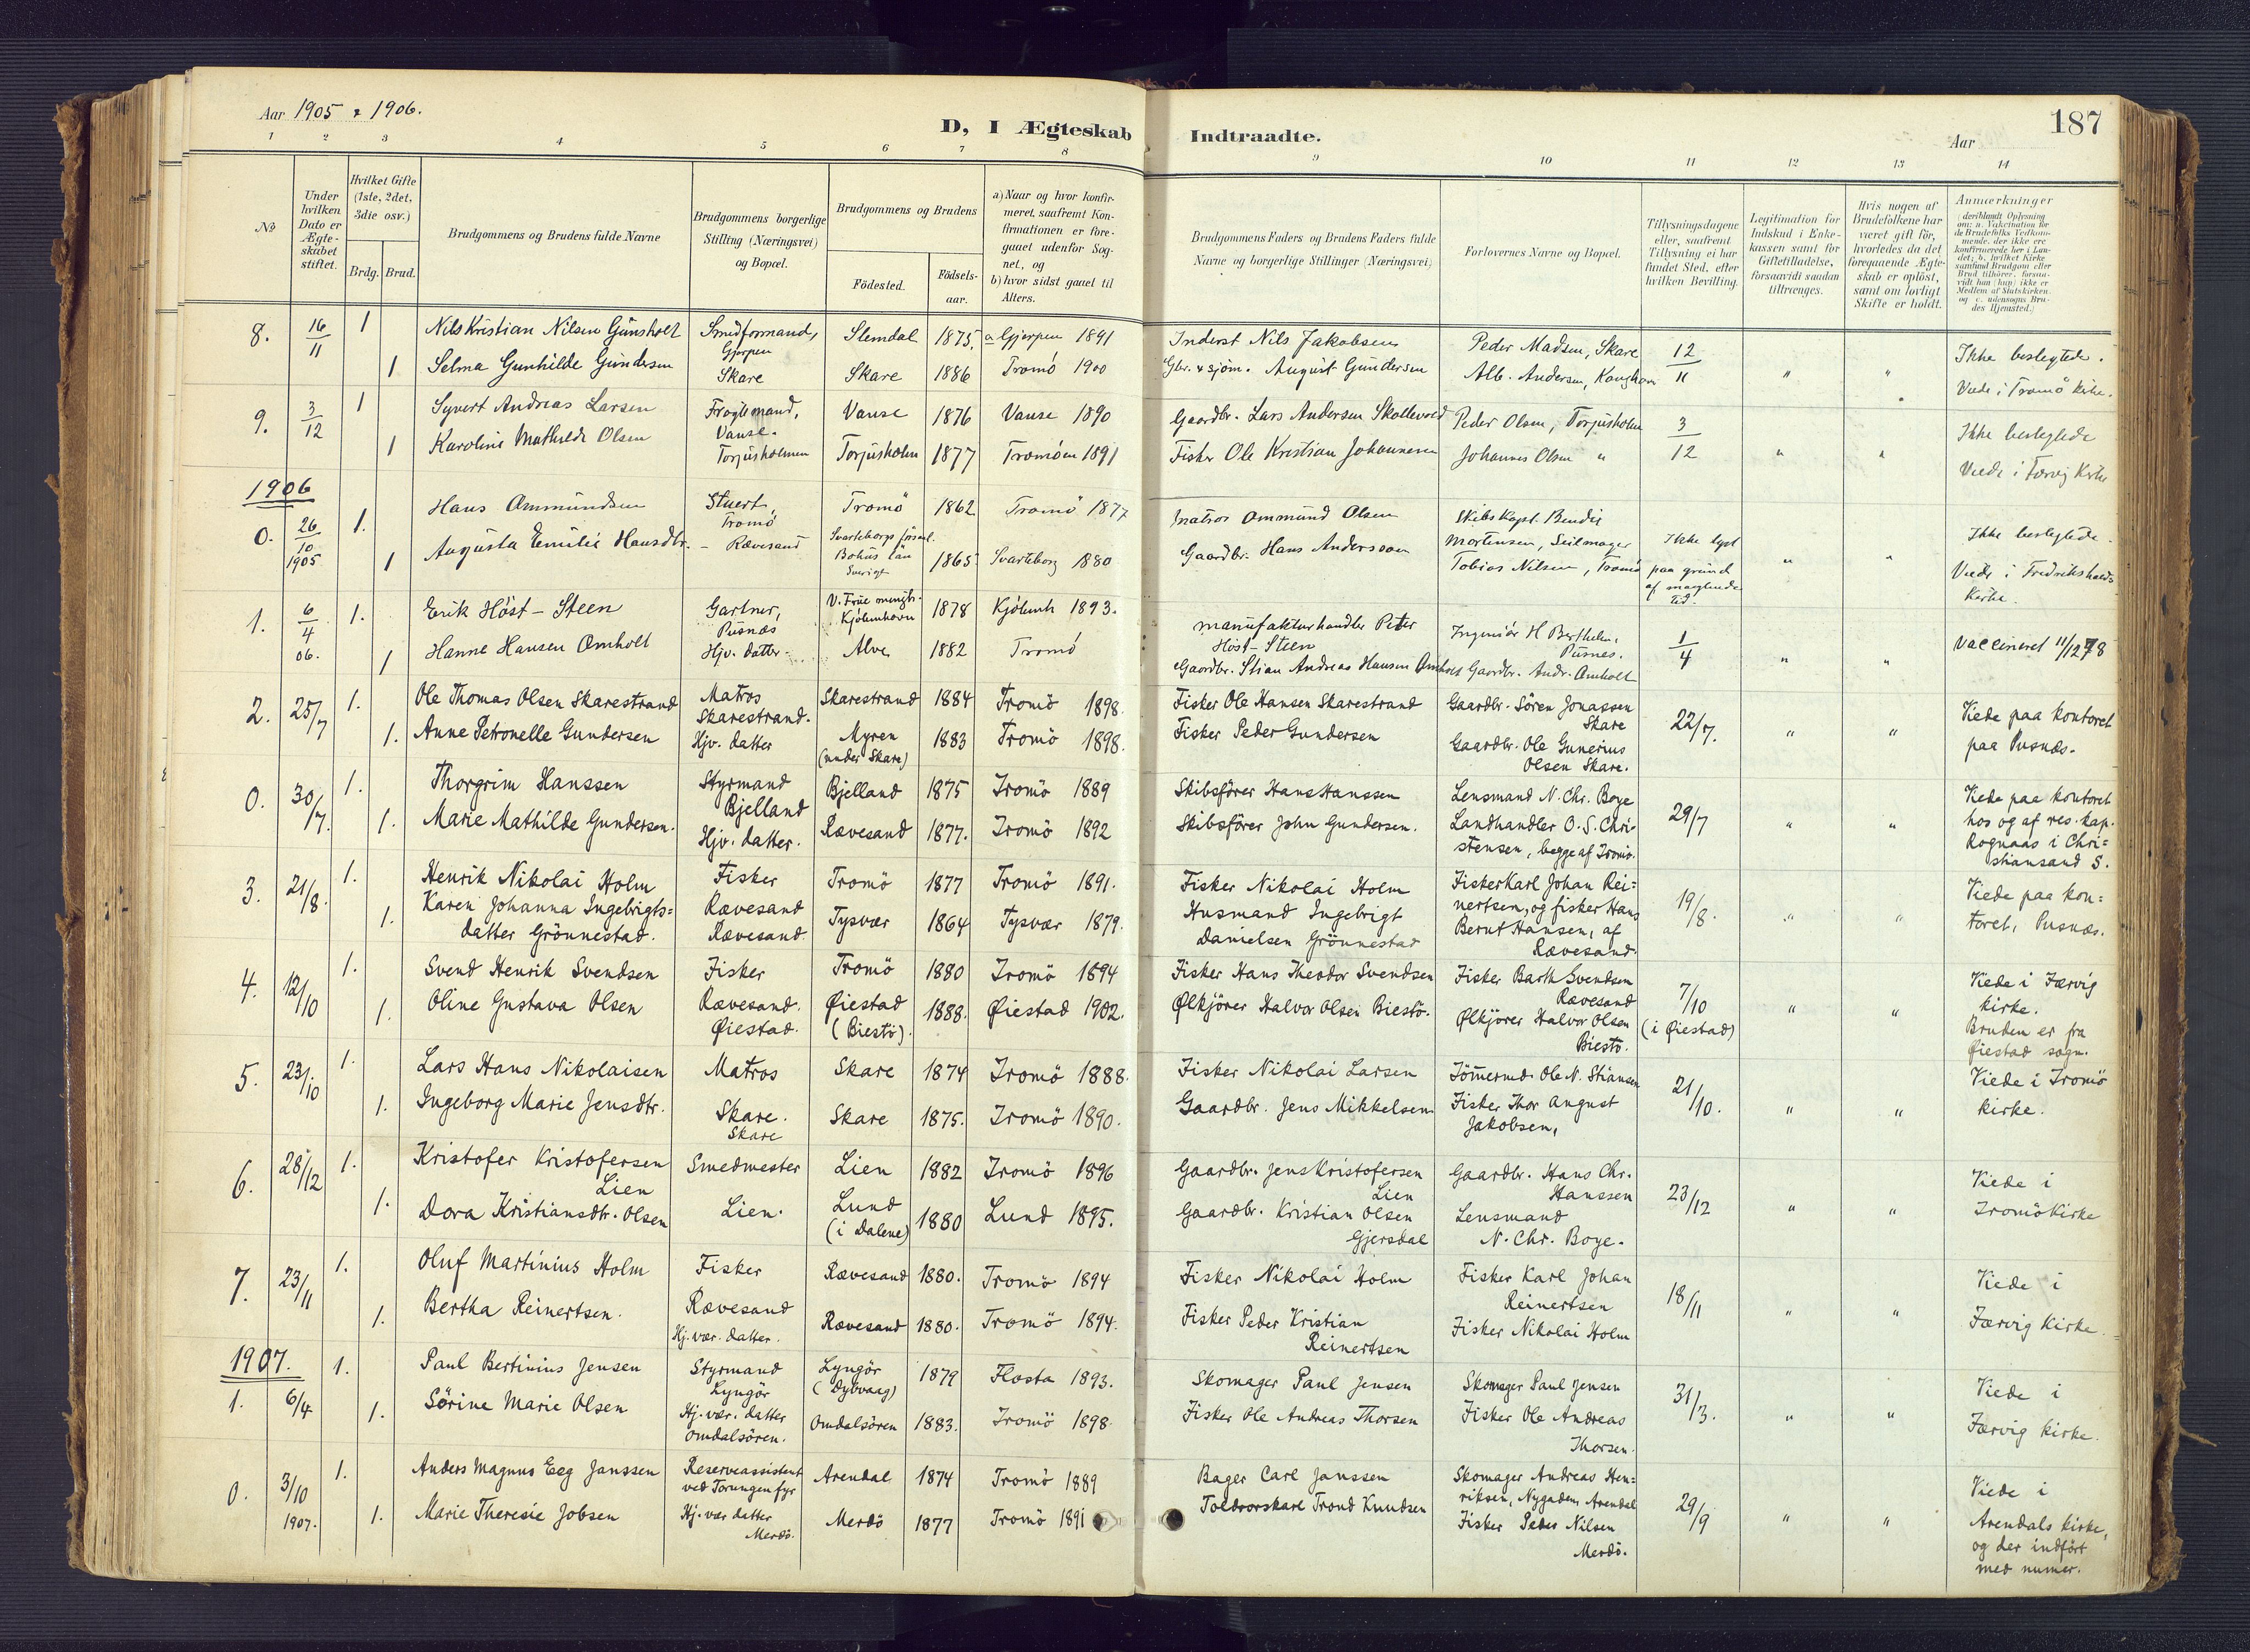 Aar 1905 & 1906.
D, I Ægteskab Indtraadte.
187
Aar
1 2 3 4 5 6 7 8 9 10 11 12 13 14
No
Under hvilken Dato er Ægteskabet stiftet.
Hvilket Gifte (1ste, 2det, 3die osv.)
Brdg. Brud.
Brudgommens og Brudens fulde Navne
Brudgommens borgerlige Stilling (Næringsvei) og Bopæl.
Brudgommens og Brudens
Födested.
Födselsaar.
a) Naar og hvor konfirmeret, saafremt Konfirmationen er foregaaet udenfor Sognet, og
b) hvor sidst gaaet til Alters.
Brudgommens Faders og Brudens Faders fulde Navne og borgerlige Stillinger (Næringsvei)
Forlovernes Navne og Bopæl.
Tillysningsdagene eller, saafremt Tillysning ei har fundet Sted, efter hvilken Bevilling.
Legitimation for Indskud i Enkekassen samt for Giftetilladelse, forsaavidt saadan tiltrænges.
Hvis nogen af Brudefolkene har været gift för, hvorledes da det foregaaende Ægteskab er oplöst, samt om lovligt Skifte er holdt.
Anmærkninger
8. 16/11 1 Nils Kristian Nilsen Gunsholt Smedformand, Gjerpen Slemdal 1875. a Gjerpen 1891 Inderst Nils Jakobsen Peder Madsen, Skare 12/11 Ikke beslegtede.
1 Selma Gunhilde Gundersen Skare Skare 1886 Tromö 1900 Gbr. & sjöm. August Gundersen Alb. Andersen, " " Viede i Tromö Kirke.
9. 3/12 1 Syvert Andreas Larsen Vanse. Vanse 1876 Vanse 1890 Gaardbr. Lars Andersen Skollevold Peder Olsen, Torjusholm 3/12 Ikke beslegtede
1 Karoline Mathilde Olsen Torjusholmen Torjusholm 1877 Tromöen 1891 Fisker Ole Kristian Johannesen Johannes Olsen " " " Viede i Færvig Kirke
1906
0. 26/10 1905 1. Hans Ommundsen Stuert, Tromö Tromö 1862 Tromö 1877 Matros Ommund Olsen Skibskapt. Bendix Mortensen, Seilmager Ikke lyst Ikke beslegtede.
1 Augusta Emilie Hansdtr. - Rævesand Svarteborgs församl. Bohus län Sverige 1865 Svarteborg 1880 Gaardbr. Hans Andersson Tobias Nilsen, Tromö paa grund af manglende tid. " " Viede i Fredrikshalds Kirke.
1. 6/4 06. 1. Erik Höst-Steen Gartner, Pusnæs V. Frue menigh. Kjöbenhavn 1878 Kjöbenh 1893. Manufakturhandler Peter Höst-Steen Ingeniör H Berthelm, Pusnes. 1/4 " " Vaccineret 11/12 78
1 Hanne Hansen Omholt Hjv. datter - Alve 1882 Tromö Gaardbr. Stian Andreas Hansen Omholt Gaardbr. Andr. Omholt
2. 25/7 1. Ole Thomas Olsen Skarestrand Matros Skarestrand. Skarestrand 1884 Tromö 1898. Fisker Ole Hansen Skarestrand Gaardbr. Sören Jonassen Skare 22/7. Viede paa kontoret
1. Anne Petronelle Gundersen Hjv. datter Myren (under Skare) 1883 Tromö 1898. Fisker Peder Gundersen Gaardbr. Ole Gunerius Olsen Skare. " " paa Pusnæs.
0. 30/7. 1. Thorgrim Hanssen Styrmand Bjelland Bjelland 1875 Tromö 1889 Skibsförer Hans Hanssen Lensmand N. Chr. Boye 29/7 Viede paa kontoret
1. Marie Mathilde Gundersen. Hjv. datter. Rævesand 1877. Tromö 1892 Skibsförer John Gundersen. Landhandler O. S. Christensen, begge af Tromö. " " hos og af res. kap. Rognaas i Christiansand S.
3. 21/8. 1. Henrik Nikolai Holm Fisker Rævesand Tromö 1877 Tromö 1891. Fisker Nikolai Holm Fisker Karl Johan Reinertsen, og fisker Hans 19/8. Viede paa kon=
1. Karen Johanna Ingebrigts= datter Grönnestad. Rævesand Tysvær 1864 Tysvær 1879. Husmand Ingebrigt Danielsen Grönnestad Bernt Hansen, af Rævesand. " " toret, Pusnæs.
4. 12/10 1. Svend Henrik Svendsen Fisker Rævesand. Tromö 1880 Tromö 1894 Fisker Hans Theodor Svendsen Fisker Barth Svendsen Rævesand 7/10 Viede i Færvig kirke.
1. Oline Gustava Olsen Øiestad. Øiestad (Biestö). 1888. Øiestad 1902. Ølkjörer Halvor Olsen Biestö. Ølkjörer Halvor Olsen Biestö. (i Øiestad) " " Bruden er fra Øiestad sogn.
5. 23/10 1. Lars Hans Nikolaisen Matros Skare. Skare 1874 Tromö 1888. Fisker Nikolai Larsen Tömermd. Ole N. Stiansen 21/10. Viede i Tromö
1. Ingeborg Marie Jensdtr. Skare Skare 1875. Tromö 1890. Gaardbr. Jens Mikkelsen Fisker Thor August Jakobsen, " " kirke.
6. 28/12 1. Kristofer Kristofersen Lien Smedmester Lien 1882 Tromö 1896 Gaardbr. Jens Kristofersen Lien Gaardbr. Hans Chr. Hanssen 23/12 Viede i
1. Dora Kristiansdtr. Olsen Lien. Lund (i Dalene) 1880 Lund 1895. Gaardbr. Kristian Olsen Gjersdal Lensmand N. Chr. Boye. " " Tromö Kirke
7. 23/11 1. Oluf Martinius Holm Fisker Rævesand Rævesand 1880. Tromö 1894 Fisker Nikolai Holm Fisker Karl Johan Reinertsen 18/11 Viede i
1. Bertha Reinertsen. Hj. vær. datter. Rævesand 1880. Tromö 1894. Fisker Peder Kristian Reinertsen Fisker Nikolai Holm " " Færvig Kirke.
1907.
1. 6/4 1. Paul Bertinius Jensen Styrmand Lyngör Lyngör (Dybvaag) 1879 Flosta 1893. Skomager Paul Jensen Skomager Paul Jensen 31/3. Viede i
1. Sörine Marie Olsen Hj. vær. datter Omdalsören. Omdalsören 1883. Tromö 1898. Fisker Ole Andreas Thorsen Fisker Ole Andreas Thorsen. " " Færvig kirke.
0. 3/10 1907. 1. Anders Magnus Eeg Janssen Reserveassistent ved Torungen fyr Arendal 1874 Tromö 1889 Bager Carl Janssen Skomager Andreas Henriksen, Nygaden, Arendal 29/9 Viede i
1. Marie Theresie Jobsen Hj. vær datter Merdö. Merdö 1877 Tromö 1891 Toldrorskarl Trond Knudsen Fisker Peder Nilsen Merdö. " " Arendals kirke, og der indfört med numer.